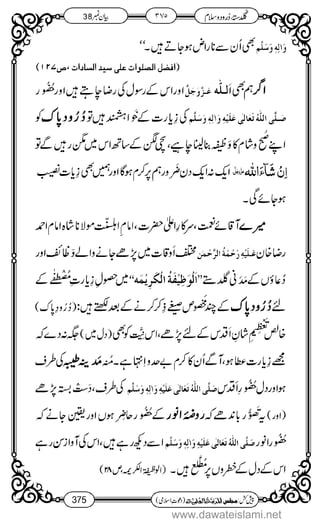 بیان نمبر 38
۳۷۵
گلدستۂ درود و سلام
وَاٰلِہٖ وَسَلَّم بھی اُن سے ناراض ہوجاتے ہیں۔‘‘
(افضل الصلوات علی سید السادات ،ص۱۲۷)
اگر ہم بھی اللّٰہ عَزَّوَجَلَّ اور اس کے رسول کی رضا چاہتے ہیں اور حضُور
صَلَّی اللہُ تَعَالٰی عَلَیْہِ وَاٰلِہٖ وَسَلَّم کی زیارت کے خواہشمند ہیں تو دُرُودِ پاک کو
اپنے صُبح و شام کا وظیفہ بنالینا چاہیے، سچی لگن کے ساتھ اس میں مگن رہیں گے تو
اِنْ شَآءَاللہ ایک نہ ایک دن ضرور ہم پر کرم ہوگا اور ہمیں بھی زیارت نصیب
ہوجائے گی۔
میرے آقائے نعمت، سرکارِ اعلٰیحضرت، امامِ اہلسنّت مولانا شاہ امام احمد
رضا خان عَلَیْہِ رَحْمَۃُ الرَّحْمٰن مختلف اَوقات میں پڑھے جانے والے وَظائِف اور
دُعاؤں کے مَدَنی گلدستے ’’اَلْوَظِیْفَۃُ الْکَرِیْمَہ‘‘ میں حصولِ زیارتِ مُصْطَفٰے کے
لئے دُرُودِ پاک کے چند مخصُوص صیغے ذِکر کرنے کے بعد لکھتے ہیں: (دُرُودِ پاک)
خالص تعظیمِ شانِ اَقدس کے لئے پڑھے، اس نیَّت کو بھی (دل میں) جگہ نہ دے کہ
مجھے زیارت عطا ہو، آگے اُن کا کرم بے حد و انتہا ہے۔ منہ مدینہ طیبہ کی طرف
ہو اور دل حضُورِ اَقدس صَلَّی اللہُ تَعَالٰی عَلَیْہِ وَاٰلِہٖ وَسَلَّم کی طرف، دَست بستہ پڑھے
(اور) یہ تصوُّر باندھے کہ روضۂ انور کے حضُور حاضِر ہوں اور یقین جانے کہ
حضُورِ انور صَلَّی اللہُ تَعَالٰی عَلَیْہِ وَاٰلِہٖ وَسَلَّم اسے دیکھ رہے ہیں، اس کی آواز سُن رہے
اس کے دل کے خطروں پر مُطَّلع ہیں۔ (الوظیفۃ الکریمہ ،ص ۲۸)
375
www.dawateislami.net